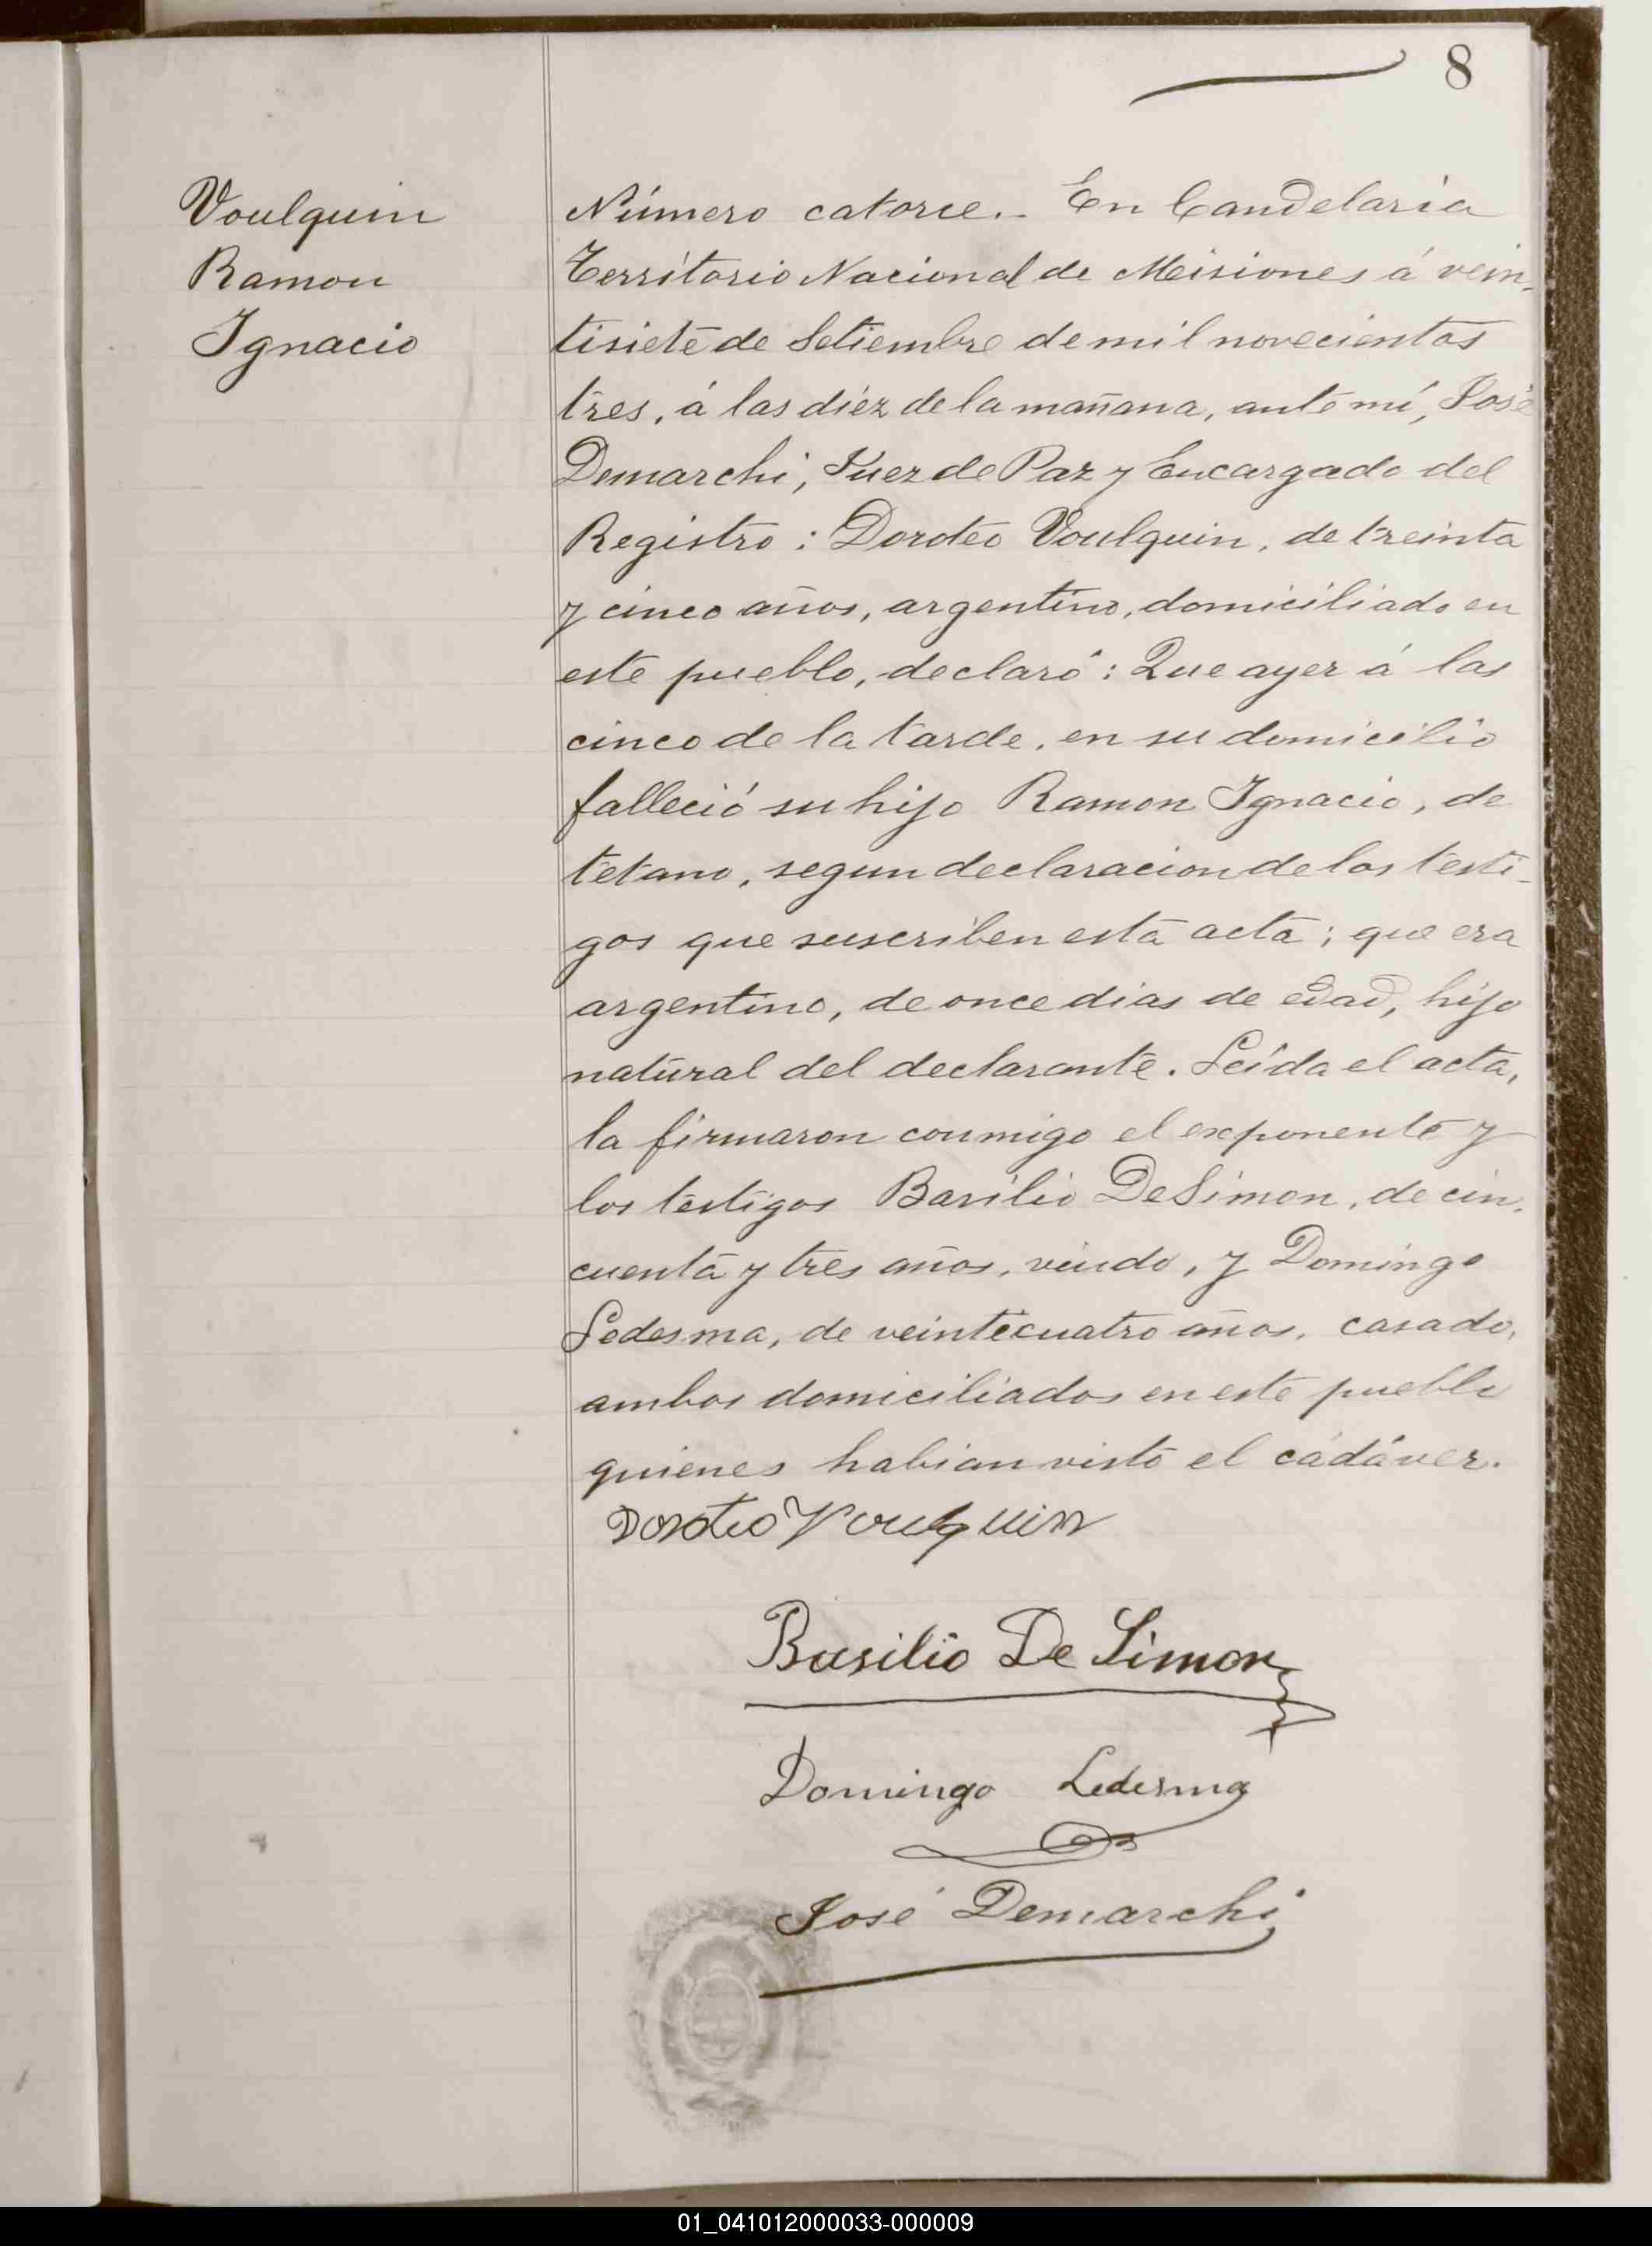 8
Voulquin
Ramon
Ignacio
Número catorce.- En Candelaria
Territorio Nacional de Misiones á vein-
tisiete de Setiembre de mil novecientos
tres, á las diéz de la mañana, ante mí, José
Demarchi, Juez de Paz y Encargado del
Registro: Doroteo Voulquin, de treinta
y cinco años, argentino, domiciliado en
este pueblo, declaró: Que ayer á las
cinco de la tarde, en su domicilio
falleció su hijo Ramon Ignacio, de
tétano, segun declaracion de los testi-
gos que suscriben esta acta; que era
argentino, de once dias de edad, hijo
natural del declarante. Leída el acta,
la firmaron conmigo el exponente y
los testigos Basilio De Simon, de cin-
cuenta y tres años, viudo, y Domingo
Ledesma, de veinticuatro años, casado,
ambos domiciliados en este pueblo
quienes habian visto el cádáver.
Doroteo Voulquin
Basilio De Simon
Domingo Ledesma
José Demarchi
01_041012000033-000009